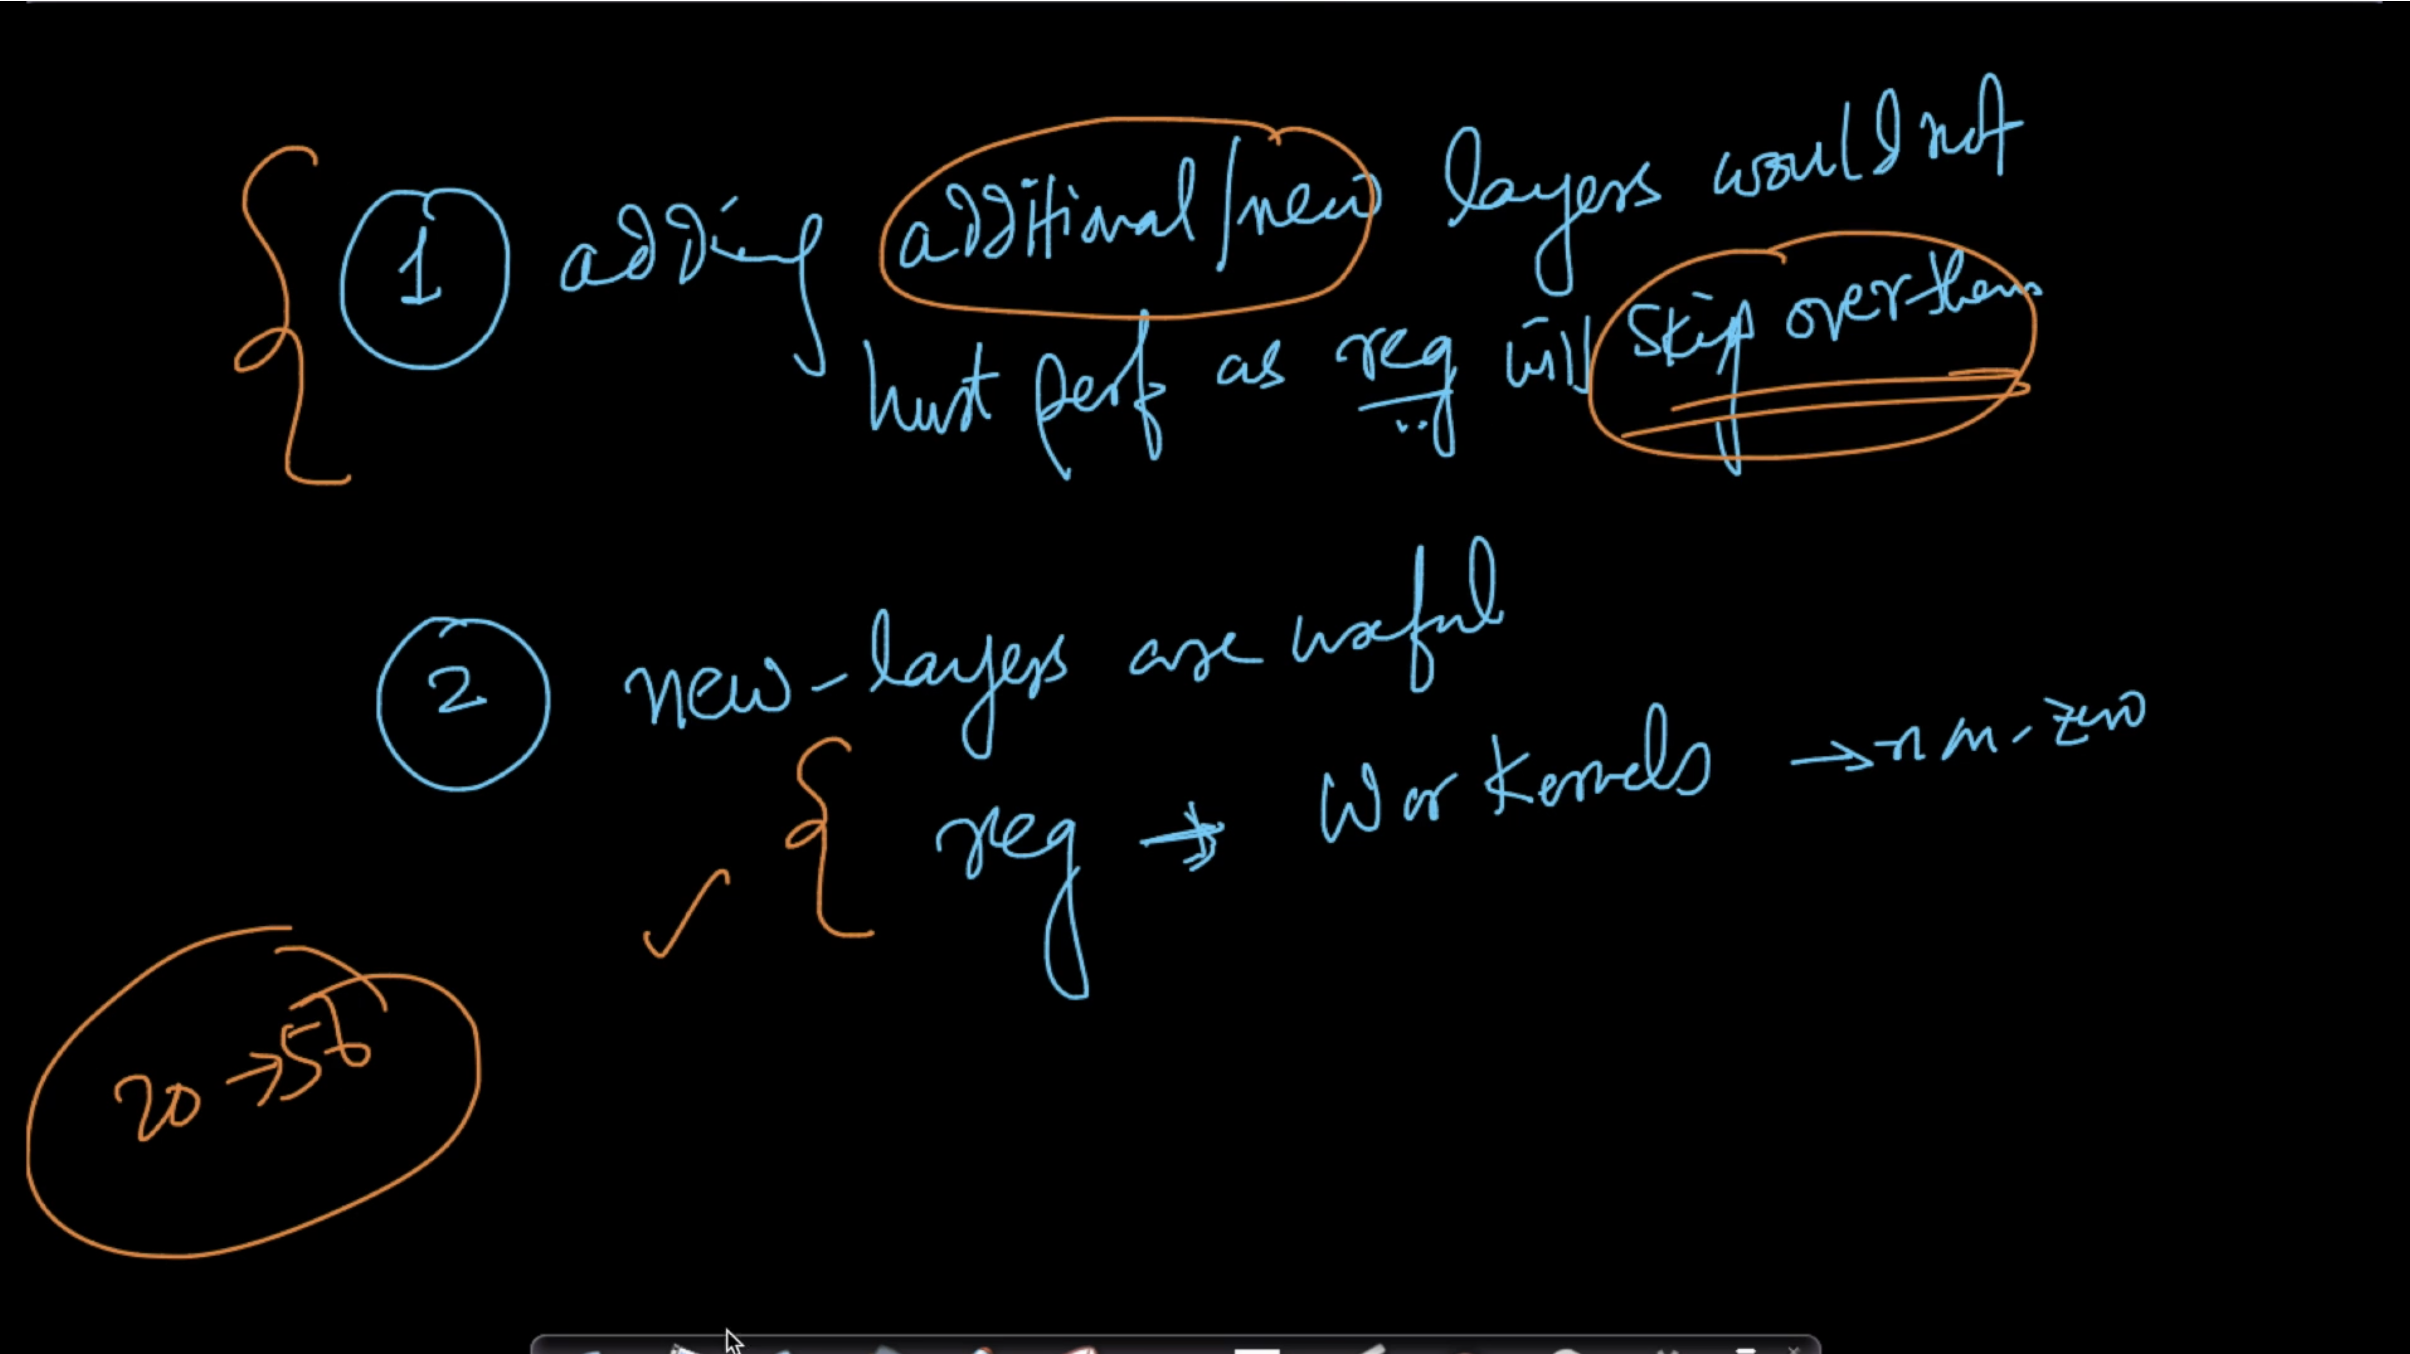 1 adding additional/new layers would not
hurt perf as reg will skip over them
2 new-layers are useful
reg → W or Kernels → non-zero
20 → 56